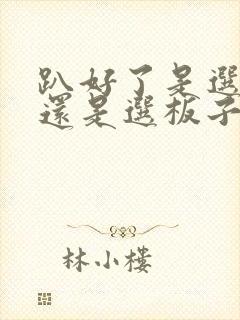 趴好了是選
還是選板子
林小樓